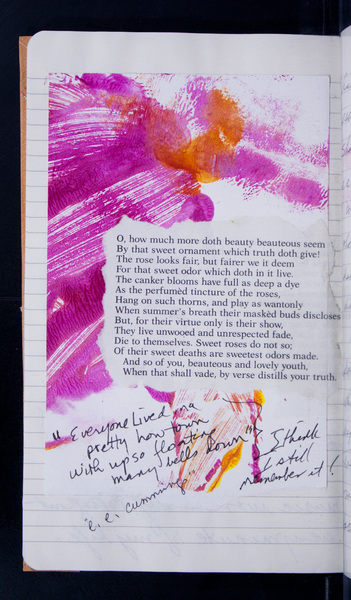 O, how much more doth beauty beauteous seem
By that sweet ornament which truth doth give!
The rose looks fair, but fairer we it deem
For that sweet odor which doth in it live.
The canker blooms have full as deep a dye
As the perfumèd tincture of the roses,
Hang on such thorns, and play as wantonly
When summer's breath their maskèd buds discloses
But, for their virtue only is their show,
They live unwooed and unrespected fade,
Die to themselves. Sweet roses do not so;
Of their sweet deaths are sweetest odors made.
And so of you, beauteous and lovely youth,
When that shall vade, by verse distills your truth.
"Everyone lived in a
pretty how town
with up so floating
many bells down"
e. e. cummings
I think
I still
remember it!